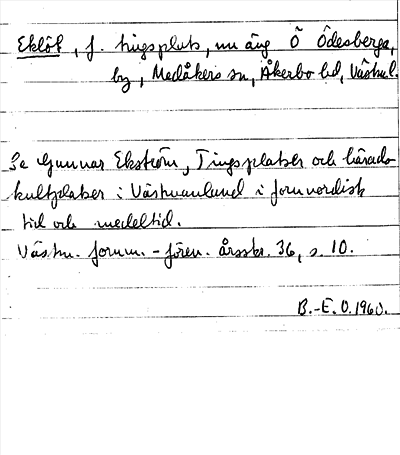 Eklöf, f. tingsplats, nu äng Ö Ödesberga,
by, Medåkers sn, Åkerbo hd, Västml.
Se Gunnar Ekström, Tingsplatser och härads-
kultplatser i Västmanland i fornnordisk
tid och medeltid.
Västm. fornm.-fören. årsskr. 36, s. 10.
B.-E. O. 1960.